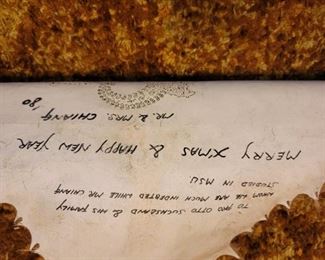 TO PRO OTTO SUCHSLAND & HIS FAMILY
WHOM WE ARE MUCH INDEBTED WHILE MR CHIANG
STUDIED IN MSU
MERRY XMAS & HAPPY NEW YEAR
MR. & MRS. CHIANG
80